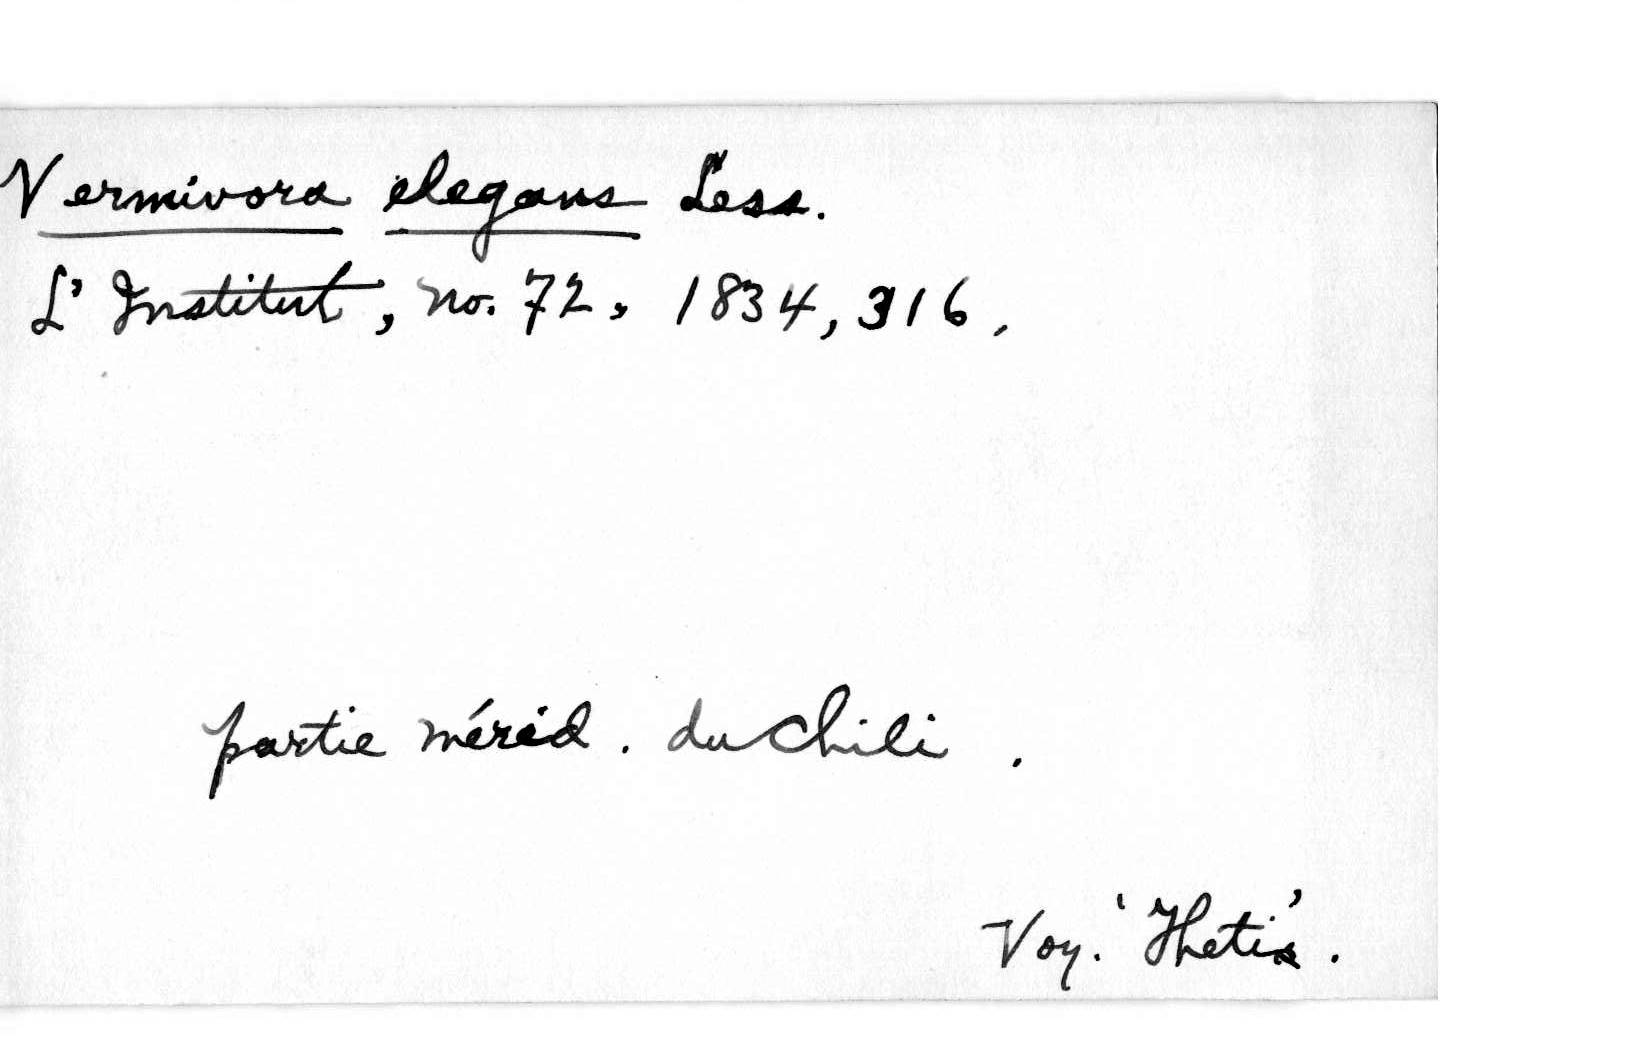 Vermivora elegans Less.
L'Institut, no. 72, 1834, 316.
partie mérid. du Chili.
Voy. 'Thetis'.